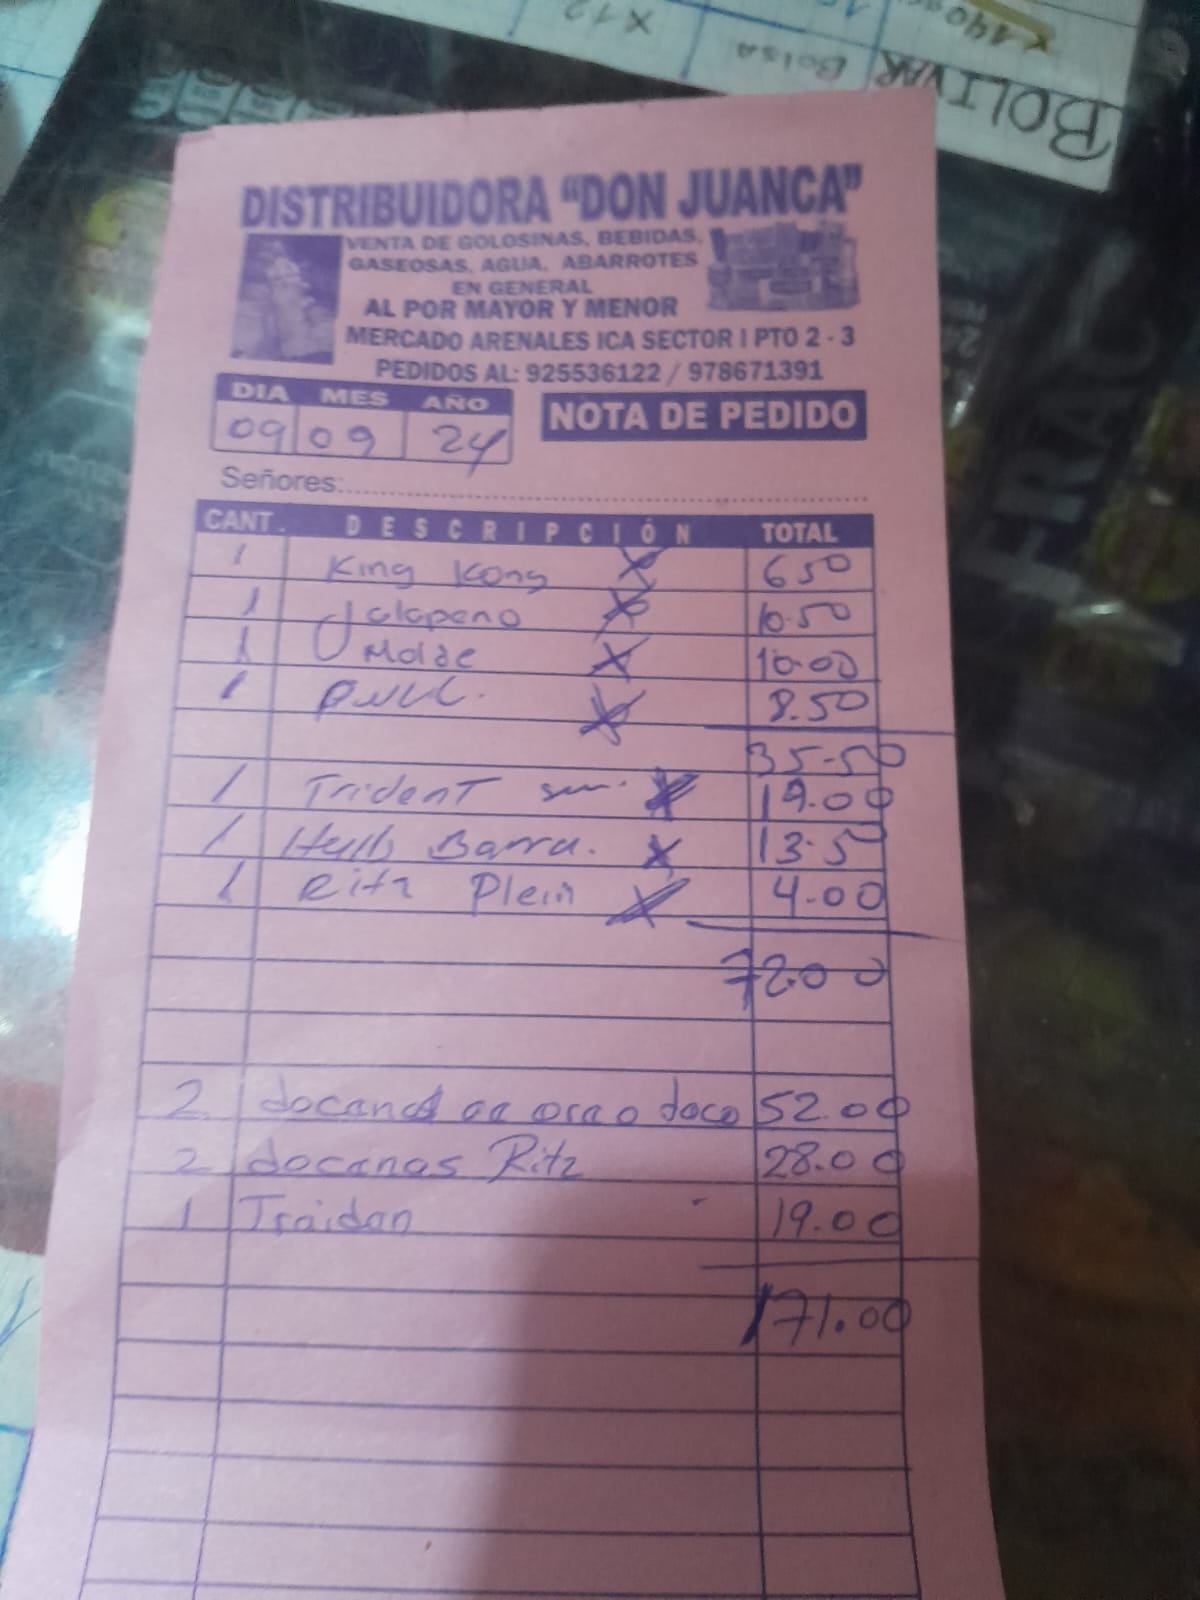 BOLIVAR Bolsa x12
DISTRIBUIDORA “DON JUANCA”
VENTA DE GOLOSINAS, BEBIDAS,
GASEOSAS, AGUA, ABARROTES
EN GENERAL
AL POR MAYOR Y MENOR
MERCADO ARENALES ICA SECTOR I PTO 2 - 3
PEDIDOS AL: 925536122 / 978671391
DIA MES AÑO
09 09 24
NOTA DE PEDIDO
Señores:
CANT. DESCRIPCIÓN TOTAL
1 King Kong x 6 50
1 Jalapeno x 10.50
1 Molde x 10.00
1 x 8.50
35-50
1 Trident x 19.00
1 Barra. x 13.5
1 Ritz Plein x 4.00
72.00
2 52.00
2 docenas Ritz 28.00
1 Traidan 19.00
171.00